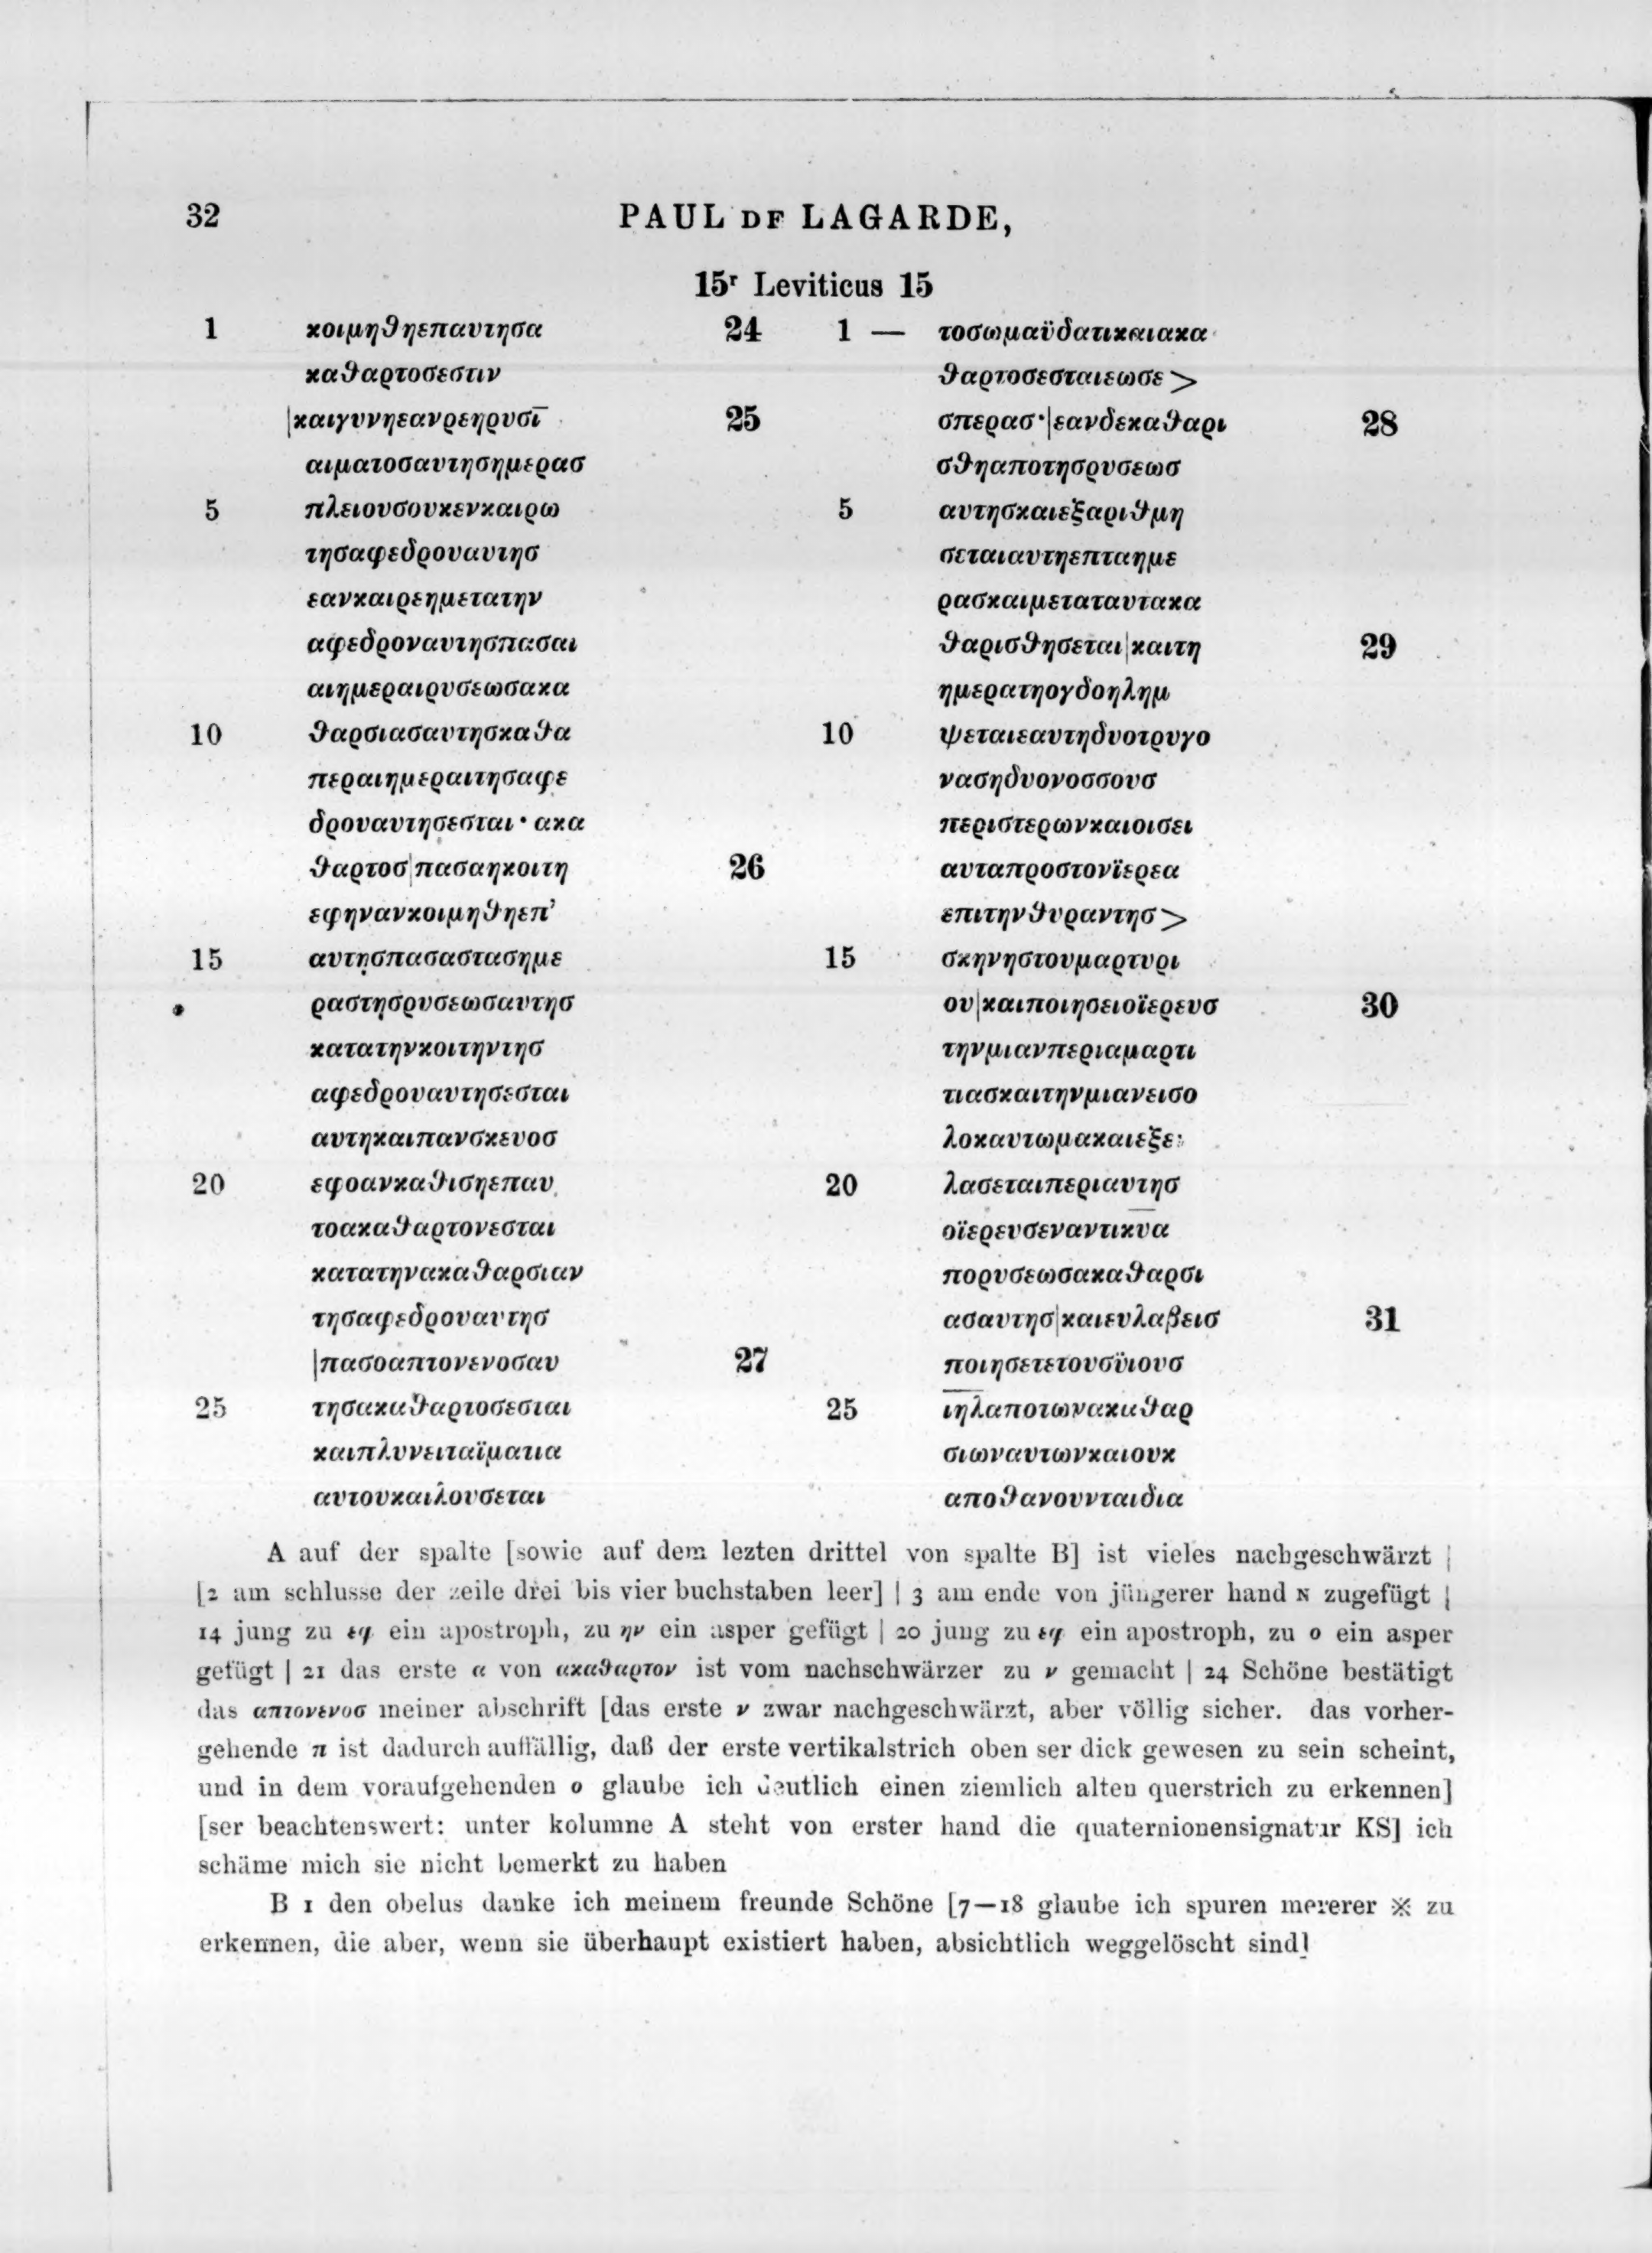 32 PAUL DF LAGARDE,
15ʳ Leviticus 15
1 κοιμηϑηεπαυτησα 24
καϑαρτοσεστιν
|καιγυνηεανρεηρυσῑ 25
αιματοσαυτησημερασ
5 πλειουσουκενκαιρω
τησαφεδρουαυτησ
εανκαιρεημετατην
αφεδροναυτησπασαι
αιημεραιρυσεωσακα
10 ϑαρσιασαυτησκαϑα
περαιημεραιτησαφε
δρουαυτησεσται· ακα
ϑαρτοσ|πασαηκοιτη 26
εφηνανκοιμηϑηεπ’
15 αυτησπασαστασημε
ραστησρυσεωσαυτησ
κατατηνκοιτηντησ
αφεδρουαυτησεσται
αυτηκαιπανσκευοσ
20 εφοανκαϑισηεπαυ
τοακαϑαρτονεσται
κατατηνακαϑαρσιαν
τησαφεδρουαυτησ
|πασοαπτονενοσαυ 27
25 τησακαϑαρτοσεσται
καιπλυνειταϊματια
αυτουκαιλουσεται
1 — τοσωμαϋδατικαιακα
ϑαρτοσεσταιεωσε>
σπερασ·|εανδεκαϑαρι 28
σϑηαποτησρυσεωσ
5 αυτησκαιεξαριϑμη
σεταιαυτηεπταημε
ρασκαιμεταταυτακα
ϑαρισϑησεται|καιτη 29
ημερατηογδοηλημ
10 ψεταιεαυτηδυοτρυγο
νασηδυονοσσουσ
περιστερωνκαιοισει
αυταπροστονϊερεα
επιτηνϑυραντησ>
15 σκηνηστουμαρτυρι
ου|καιποιησειοϊερευσ 30
τηνμιανπεριαμαρτι
τιασκαιτηνμιανεισο
λοκαυτωμακαιεξε
20 λασεταιπεριαυτησ
οϊερευσεναντικ̅υ̅α
πορυσεωσακαϑαρσι
ασαυτησ|καιευλαβεισ 31
ποιησετετουσϋιουσ
25 ι̅η̅λαποτωνακαϑαρ
σιωναυτωνκαιουκ
αποϑανουνταιδια
A auf der spalte [sowie auf dem lezten drittel von spalte B] ist vieles nachgeschwärzt |
[2 am schlusse der zeile drei bis vier buchstaben leer] | 3 am ende von jüngerer hand N zugefügt |
14 jung zu εφ ein apostroph, zu ην ein asper gefügt | 20 jung zu εφ ein apostroph, zu ο ein asper
gefügt | 21 das erste α von ακαϑαρτον ist vom nachschwärzer zu ν gemacht | 24 Schöne bestätigt
das απτονενοσ meiner abschrift [das erste ν zwar nachgeschwärzt, aber völlig sicher. das vorher-
gehende π ist dadurch auffällig, daß der erste vertikalstrich oben ser dick gewesen zu sein scheint,
und in dem voraufgehenden ο glaube ich deutlich einen ziemlich alten querstrich zu erkennen]
[ser beachtenswert: unter kolumne A steht von erster hand die quaternionensignatur KS] ich
schäme mich sie nicht bemerkt zu haben
B 1 den obelus danke ich meinem freunde Schöne [7—18 glaube ich spuren mererer ※ zu
erkennen, die aber, wenn sie überhaupt existiert haben, absichtlich weggelöscht sind]